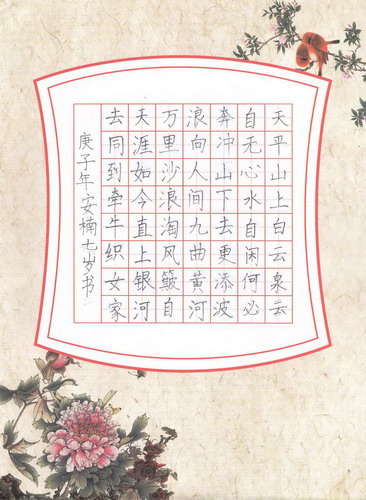 天平山上白云泉云
自无心水自闲何必
奔冲山下去更添波
浪向人间九曲黄河
万里沙浪淘风簸自
天涯如今直上银河
去同到牵牛织女家
庚子年安楠七岁书